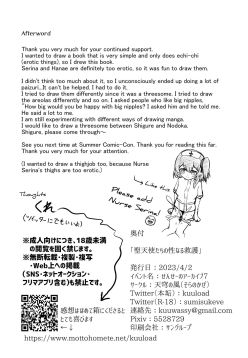 Afterword
Thank you very much for your continued support.
I wanted to draw a book that is very simple and only does echi-chi
(erotic things), so I drew this book.
Serina and Hanae are definitely too erotic, so it was fun to draw them.
I didn't think too much about it, so I unconsciously ended up doing a lot of
paizuri...It can't be helped. I had to do it.
I tried to draw them differently since it was a threesome. I tried to draw
the areolas differently and so on. I asked people who like big nipples,
"How big would you be happy with big nipples? I asked him and he told me.
He said a lot to me.
I am still experimenting with different ways of drawing manga.
I would like to draw a threesome between Shigure and Nodoka.
Shigure, please come through~
See you next time at Summer Comic-Con. Thank you for reading this far.
Thank you very much for your attention.
(I wanted to draw a thighjob too, because Nurse
Serina's thighs are too erotic.)
Like this
Please add
Nurse Serina
Thoughts
(ツイッターにでもいいよ)
※成人向けにつき、18歳未満
の閲覧を固く禁じます。
※無断転載・複製・複写
・Web上への掲載
(SNS・ネットオークション・
フリマアプリ含む)も禁止です。
感想ははめて箱にくださると
とても喜びます
←↓
https://www.mottohomete.net/kuuload
奥付
「聖天使たちの性なる救護」
発行日:2023/4/2
イベント名:せんせーのアーカイブ7
サークル:天穹の風(そらかぜ)
Twitter(本垢):kuuload
Twitter(R-18):sumisukeve
連絡先:kuuwassy@gmail.com
Pixiv:5528729
印刷会社:サンループ